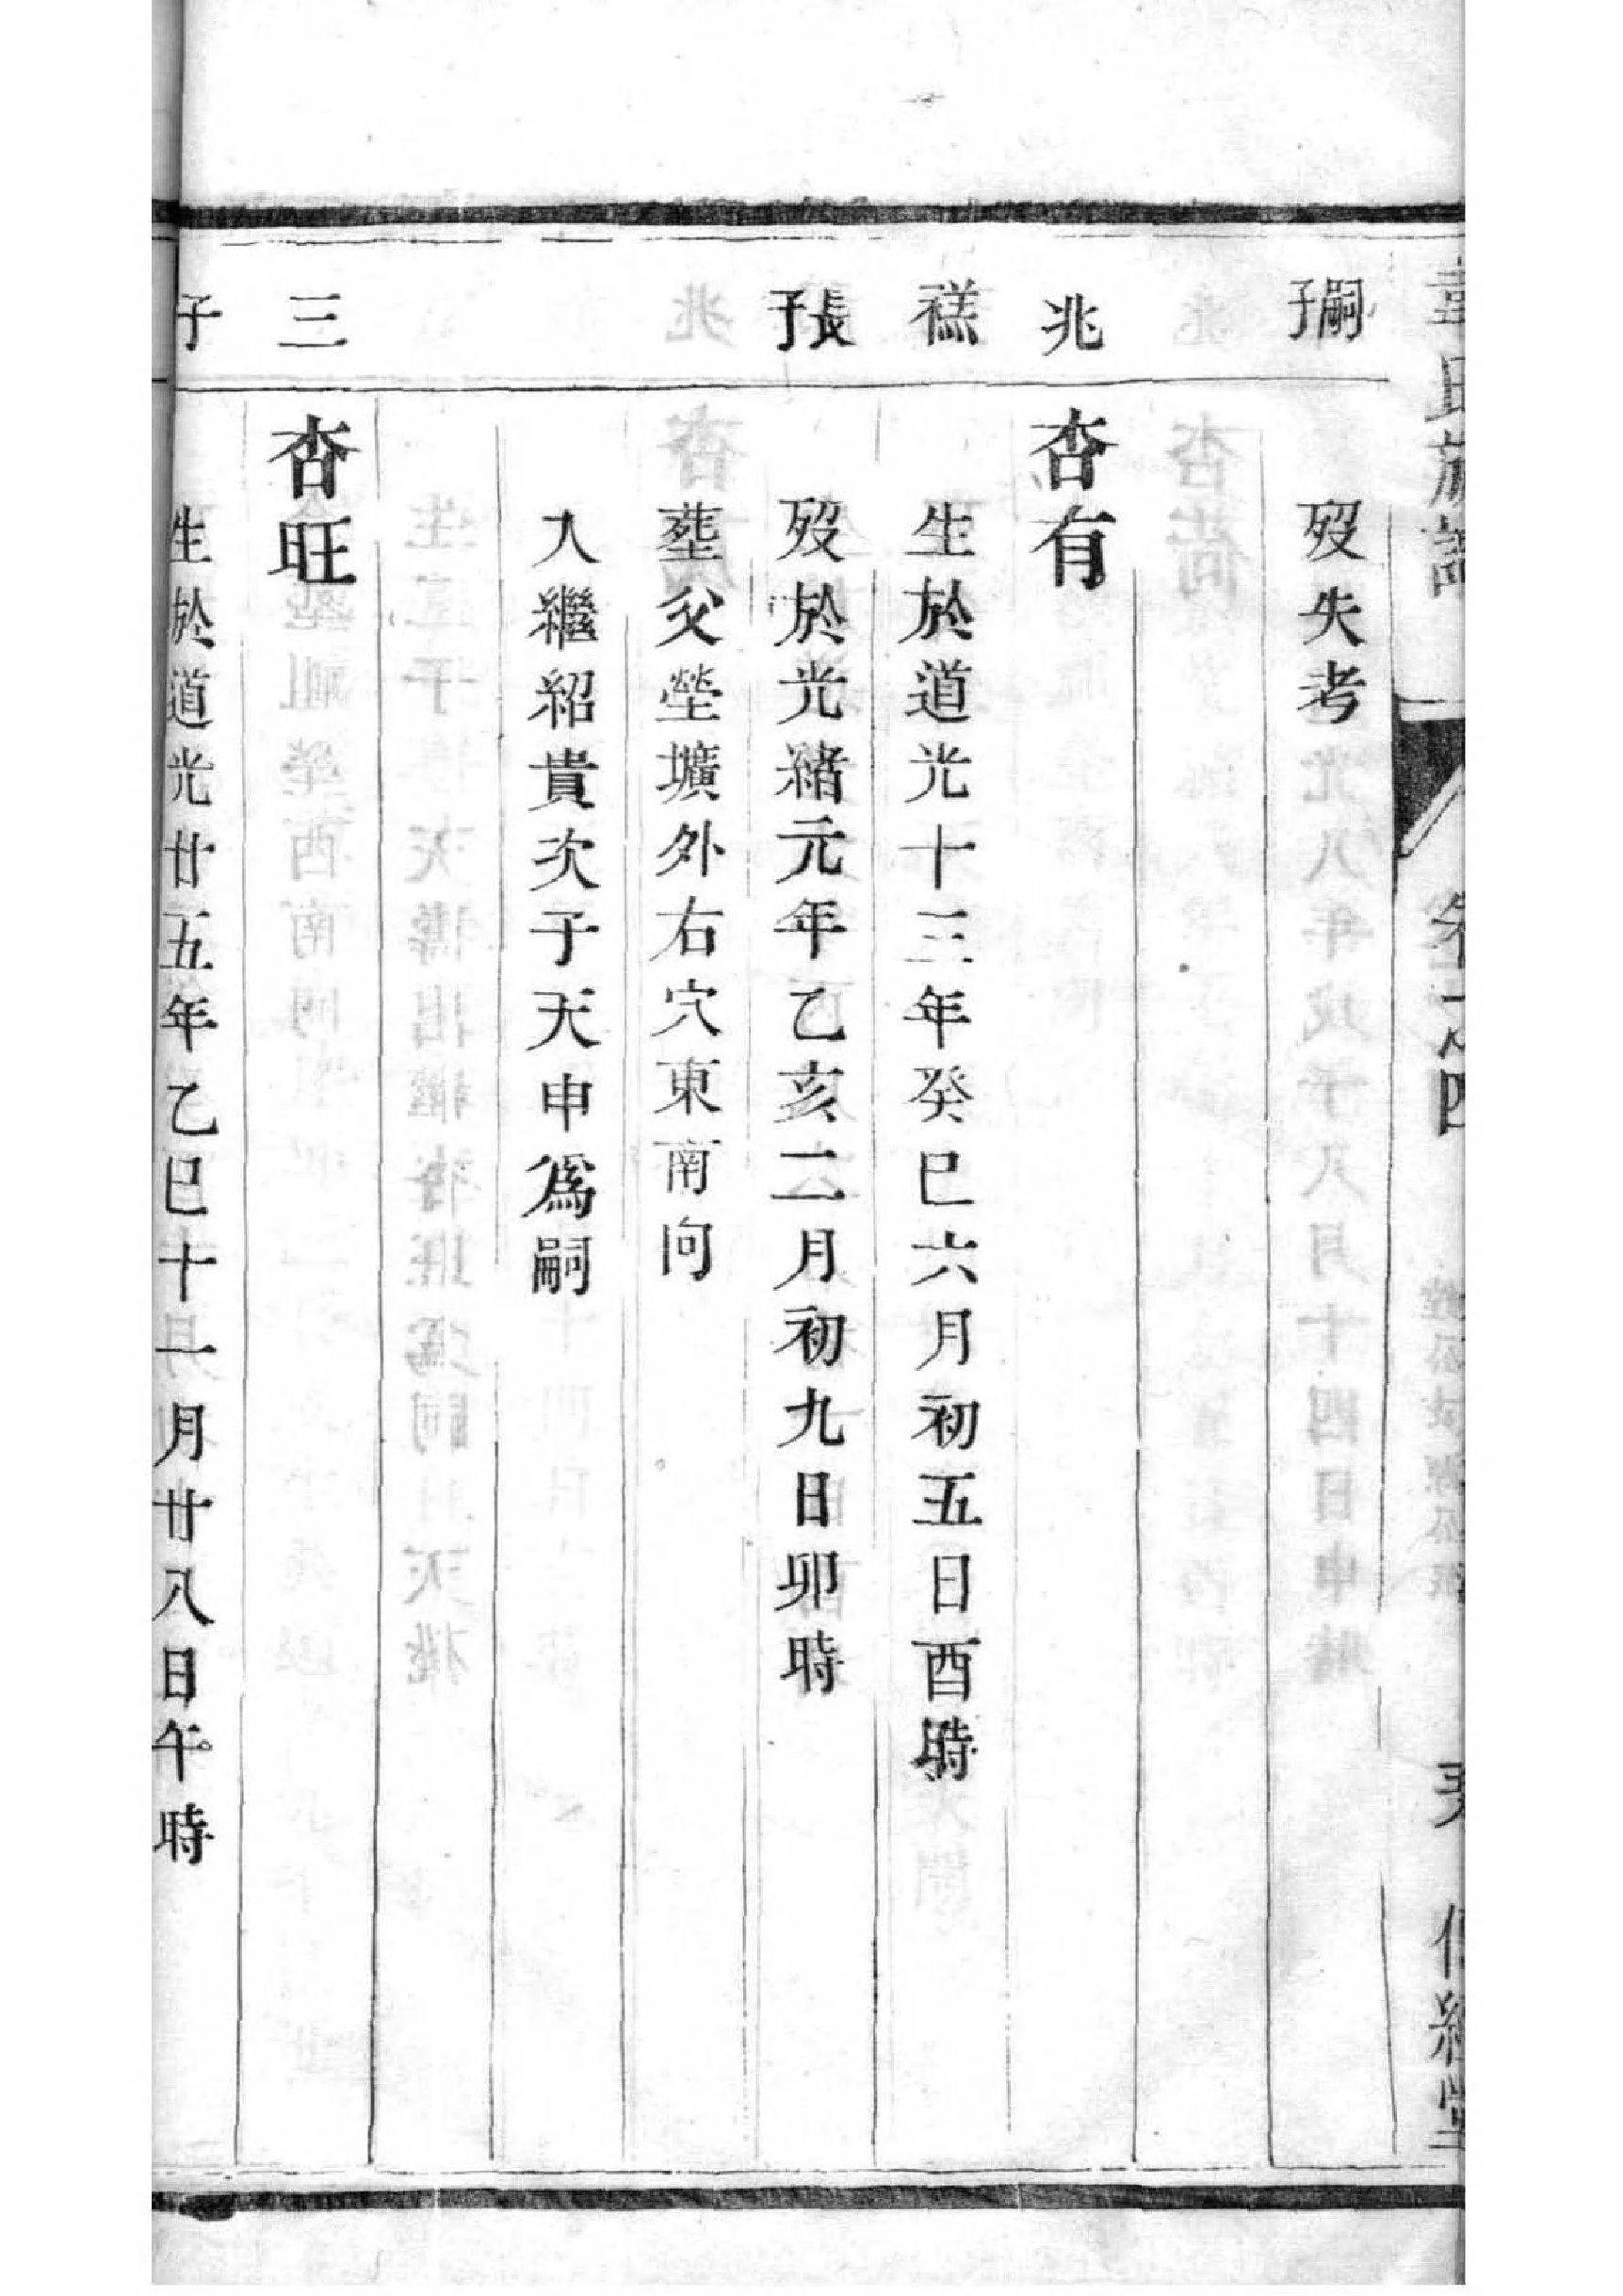 氏族譜 卷之四
嗣子
歿失考
兆
杏有
禚
生於道光十三年癸巳六月初五日酉時
長子
歿於光緒元年乙亥二月初九日卯時
葬父塋壙外右穴東南向
入繼紹貴次子天申爲嗣
三
杏旺
子
生於道光廿五年乙巳十一月廿八日午時